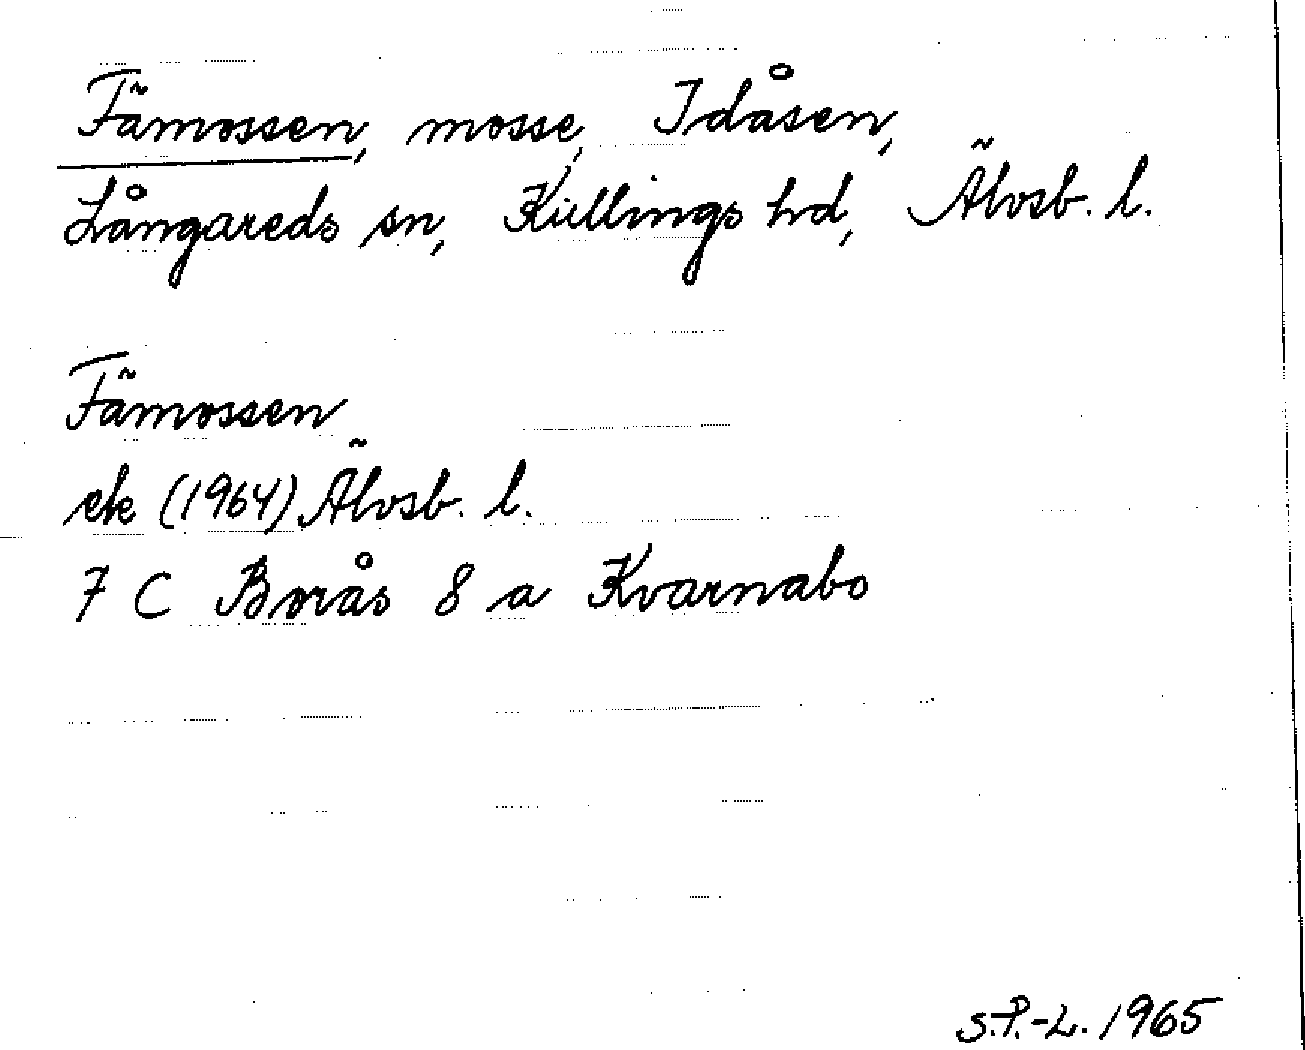 Fämossen, mosse, Idåsen,
Långareds sn, Kullings hd, Älvsb. l.
Fämossen
ek (1964) Älvsb. l.
7 C Borås 8 a Kvarnabo
S.P.-L. 1965